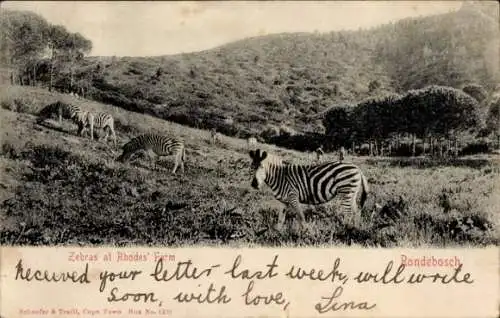 Zebras at Rhodes' Farm Rondebosch.
Received your letter last week, will write
Soon, with love, Lina
Schaefer & Traill, Cape Town Box No